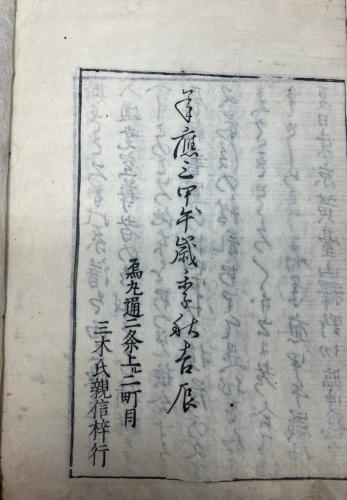 承應三甲午歳季秋吉辰
烏丸通二条上ル二町目
三木氏親信梓行